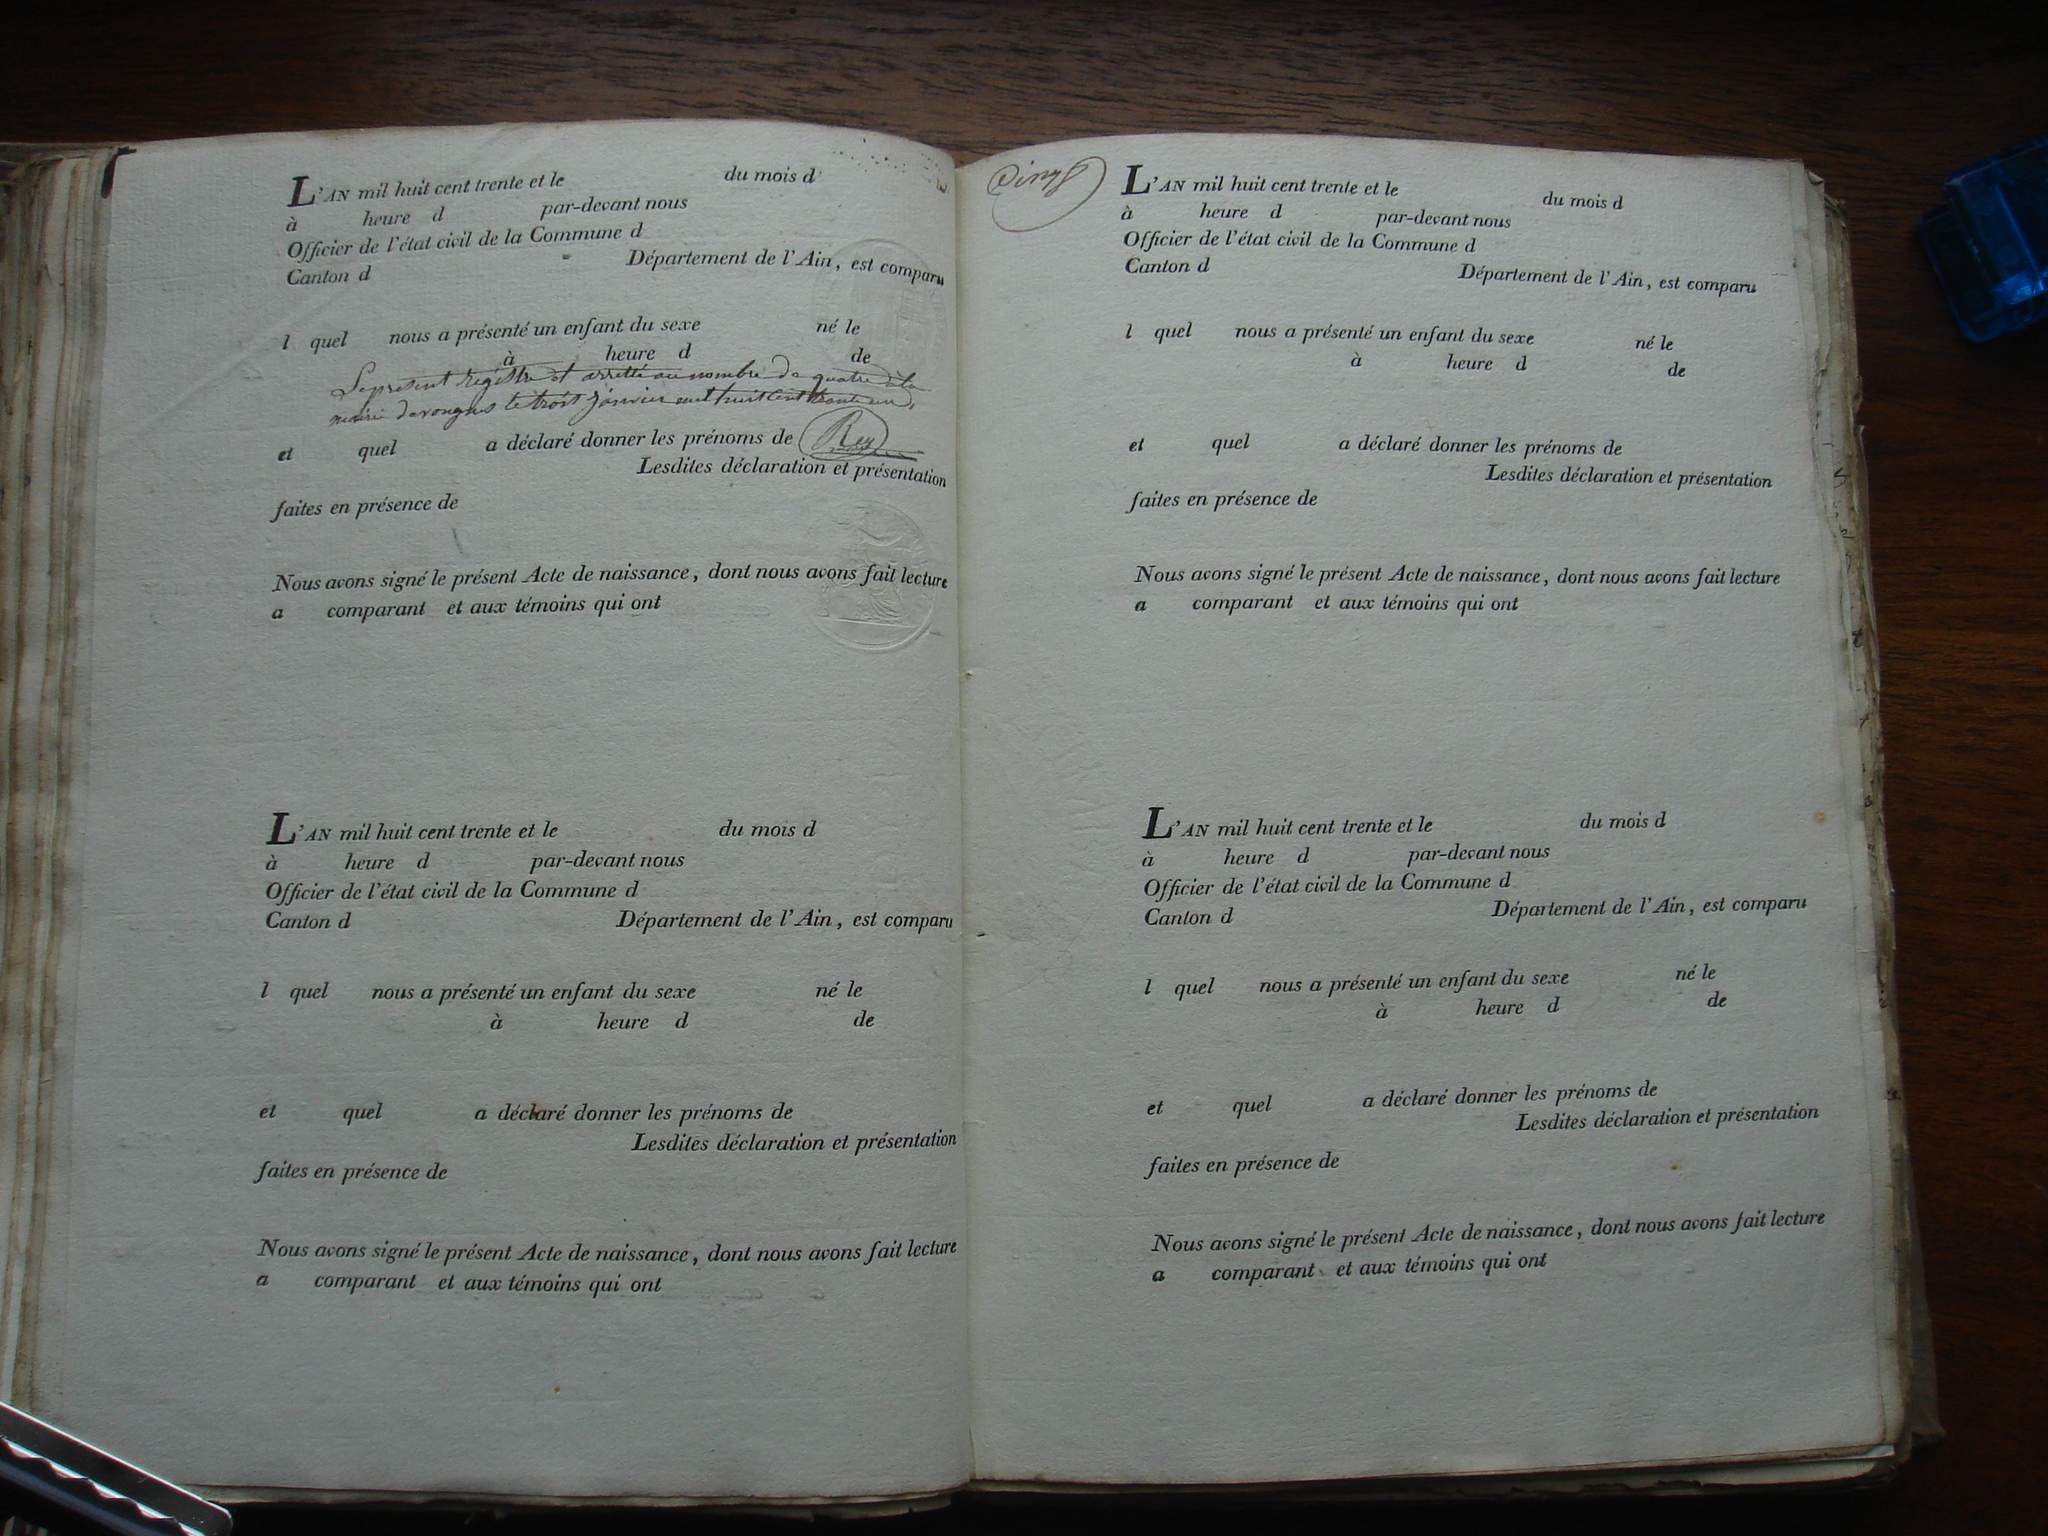 L'AN mil huit cent trente et le du mois d
à heure d par-devant nous
Officier de l'état civil de la Commune d
Canton d Département de l'Ain, est comparu
l quel nous a présenté un enfant du sexe né le
à heure d de
Le present registre et arretté au nombre de quatre à la
mairie de vongnes le trois janvier mil huit cent trente un
et quel a déclaré donner les prénoms de Rey
Lesdites déclaration et présentation
faites en présence de
Nous avons signé le présent Acte de naissance, dont nous avons fait lecture
a comparant et aux témoins qui ont
L'AN mil huit cent trente et le du mois d
à heure d par-devant nous
Officier de l'état civil de la Commune d
Canton d Département de l'Ain, est comparu
l quel nous a présenté un enfant du sexe né le
à heure d de
et quel a déclaré donner les prénoms de
Lesdites déclaration et présentation
faites en présence de
Nous avons signé le présent Acte de naissance, dont nous avons fait lecture
a comparant et aux témoins qui ont
L'AN mil huit cent trente et le du mois d
à heure d par-devant nous
Officier de l'état civil de la Commune d
Canton d Département de l'Ain, est comparu
l quel nous a présenté un enfant du sexe né le
à heure d de
et quel a déclaré donner les prénoms de
Lesdites déclaration et présentation
faites en présence de
Nous avons signé le présent Acte de naissance, dont nous avons fait lecture
a comparant et aux témoins qui ont
L'AN mil huit cent trente et le du mois d
à heure d par-devant nous
Officier de l'état civil de la Commune d
Canton d Département de l'Ain, est comparu
l quel nous a présenté un enfant du sexe né le
à heure d de
et quel a déclaré donner les prénoms de
Lesdites déclaration et présentation
faites en présence de
Nous avons signé le présent Acte de naissance, dont nous avons fait lecture
a comparant et aux témoins qui ont